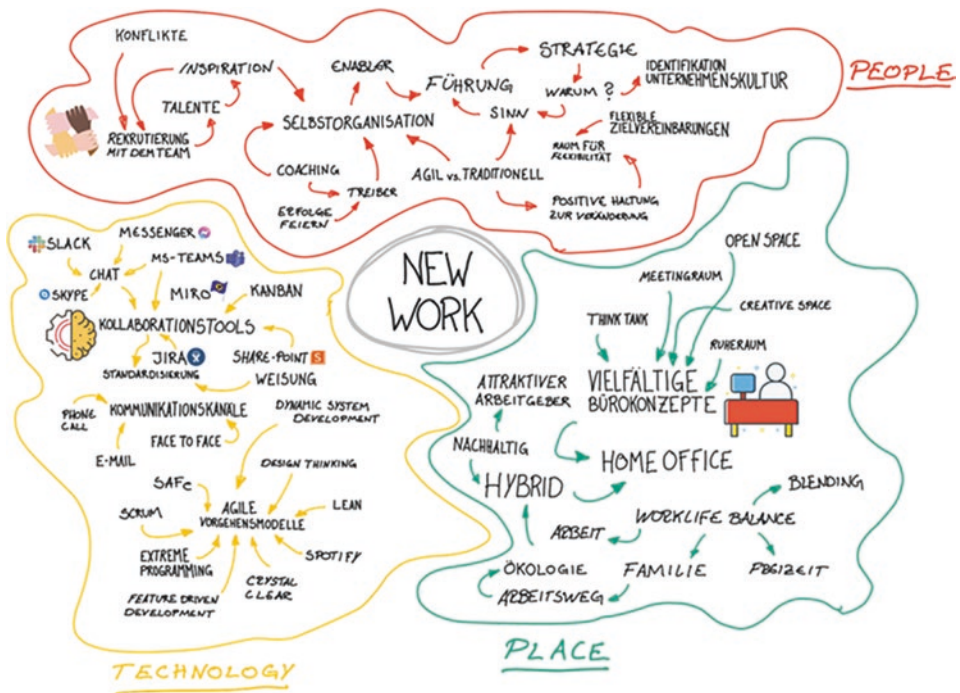 KONFLIKTE
INSPIRATION
TALENTE
REKRUTIERUNG
MIT DEM TEAM
ENABLER
SELBSTORGANISATION
COACHING
TREIBER
ERFOLGE
FEIERN
FÜHRUNG
STRATEGIE
WARUM?
SINN
IDENTIFIKATION
UNTERNEHMENSKULTUR
FLEXIBLE
ZIELVEREINBARUNGEN
RAUM FÜR
FLEXIBILITÄT
AGIL vs. TRADITIONELL
POSITIVE HALTUNG
ZUR VERÄNDERUNG
PEOPLE
NEW
WORK
SLACK
MESSENGER
MS-TEAMS
CHAT
SKYPE
MIRO
KANBAN
KOLLABORATIONSTOOLS
JIRA
SHARE-POINT
S
STANDARDISIERUNG
WEISUNG
PHONE
CALL
KOMMUNIKATIONSKANÄLE
E-MAIL
FACE TO FACE
DYNAMIC SYSTEM
DEVELOPMENT
DESIGN THINKING
SAFe
SCRUM
AGILE
VORGEHENSMODELLE
LEAN
EXTREME
PROGRAMMING
SPOTIFY
CRYSTAL
CLEAR
FEATURE DRIVEN
DEVELOPMENT
TECHNOLOGY
OPEN SPACE
MEETINGRAUM
CREATIVE SPACE
THINK TANK
RUHERAUM
VIELFÄLTIGE
BÜROKONZEPTE
ATTRAKTIVER
ARBEITGEBER
NACHHALTIG
HYBRID
HOME OFFICE
BLENDING
WORKLIFE BALANCE
ARBEIT
ÖKOLOGIE
FAMILIE
ARBEITSWEG
PLACE